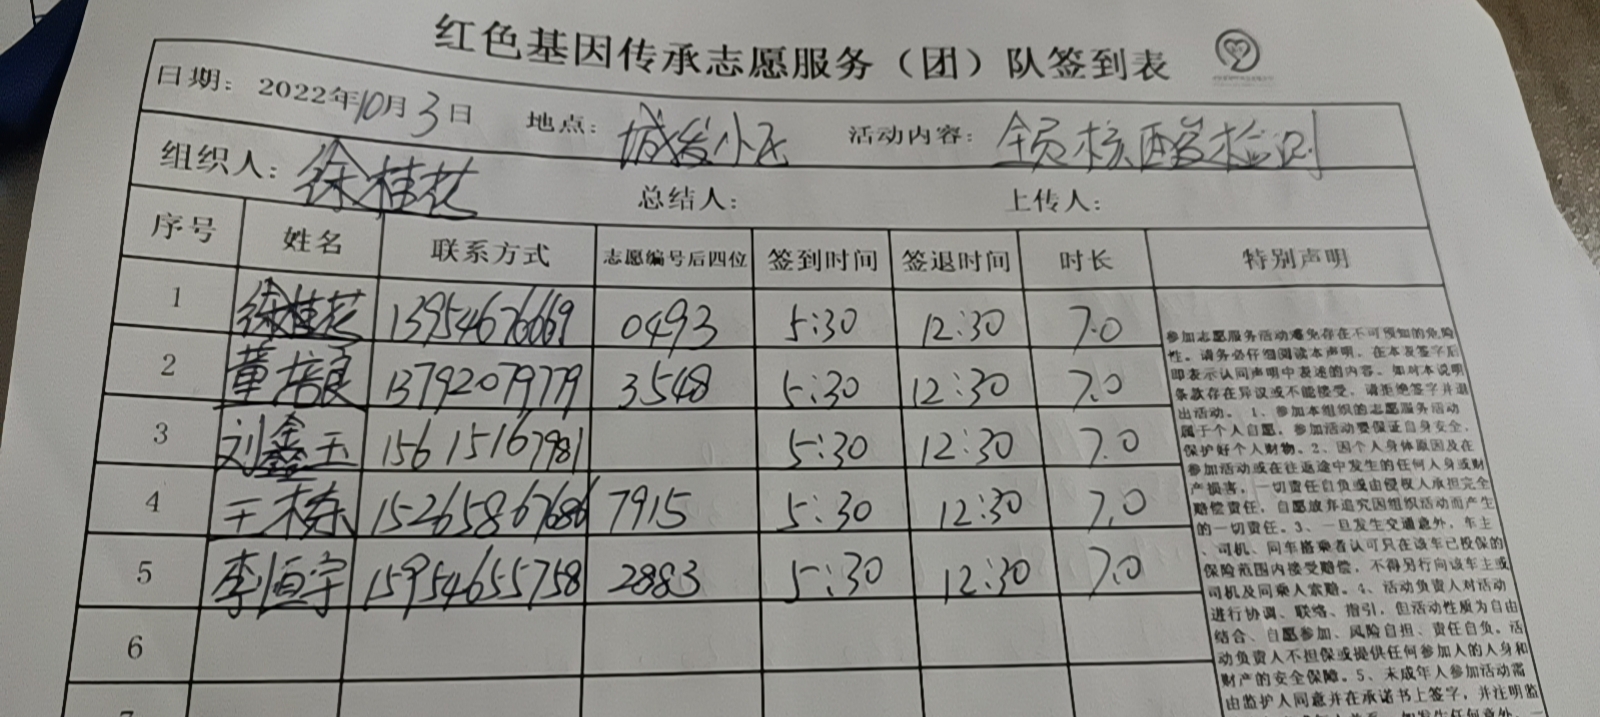 红色基因传承志愿服务（团）队签到表
日期：2022年10月3日 地点：城发小区 活动内容：全员核酸检测
组织人：徐桂花 总结人： 上传人：
序号 姓名 联系方式 志愿编号后四位 签到时间 签退时间 时长 特别声明
1 徐桂花 13954676669 0493 5:30 12:30 7.0
2 董培良 13792079779 3548 5:30 12:30 7.0
3 刘鑫玉 15615167981 5:30 12:30 7.0
4 王栋 15265867686 7915 5:30 12:30 7.0
5 李恒宇 15954655758 2883 5:30 12:30 7.0
6
7
参加志愿服务活动难免存在不可预知的危险
性。请务必仔细阅读本声明，在本表签字后
即表示认同声明中表述的内容。如对本说明
条款存在异议或不能接受，请拒绝签字并退
出活动。1、参加本组织的志愿服务活动
属于个人自愿。参加活动要保证自身安全，
保护好个人财物。2、因个人身体原因及在
参加活动或在往返途中发生的任何人身或财
产损害，一切责任自负或由侵权人承担完全
赔偿责任，自愿放弃追究因组织活动而产生
的一切责任。3、一旦发生交通意外，车主
、司机、同车搭乘者认可只在该车已投保的
保险范围内接受赔偿，不得另行向该车主或
司机及同乘人索赔。4、活动负责人对活动
进行协调、联络、指引，但活动性质为自由
结合、自愿参加、风险自担、责任自负。活
动负责人不担保或提供任何参加人的人身和
财产的安全保障。5、未成年人参加活动需
由监护人同意并在承诺书上签字，并注明监